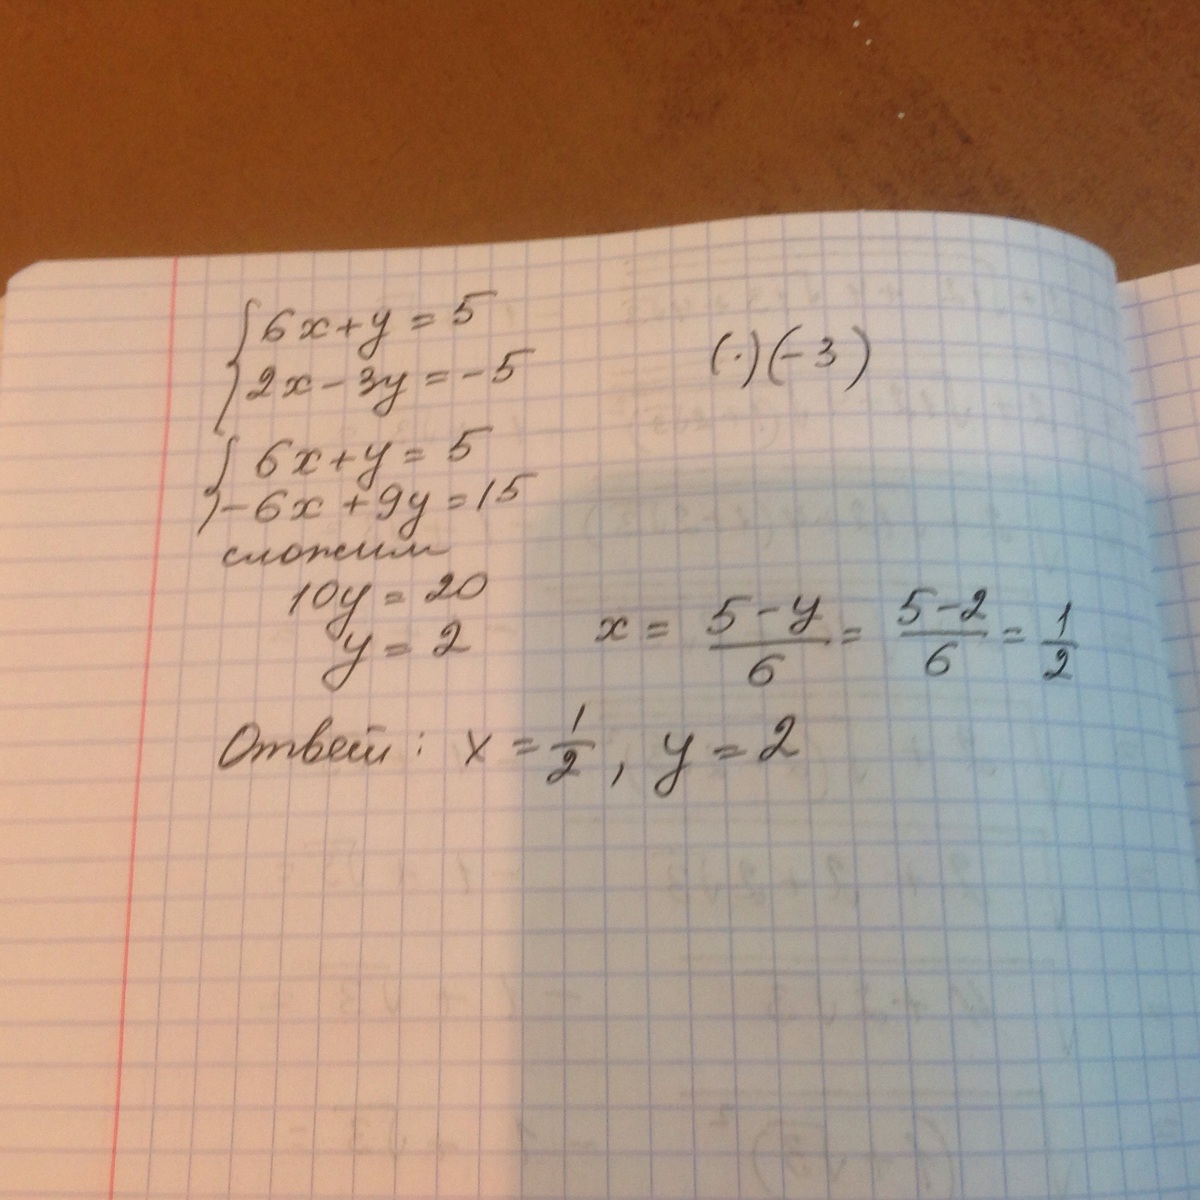 6x+y=5
2x-3y=-5 (·)(-3)
6x+y=5
-6x+9y=15
сложим
10y=20
y=2 x= (5-y)/6 = (5-2)/6 = 1/2
Ответ: x=1/2, y=2